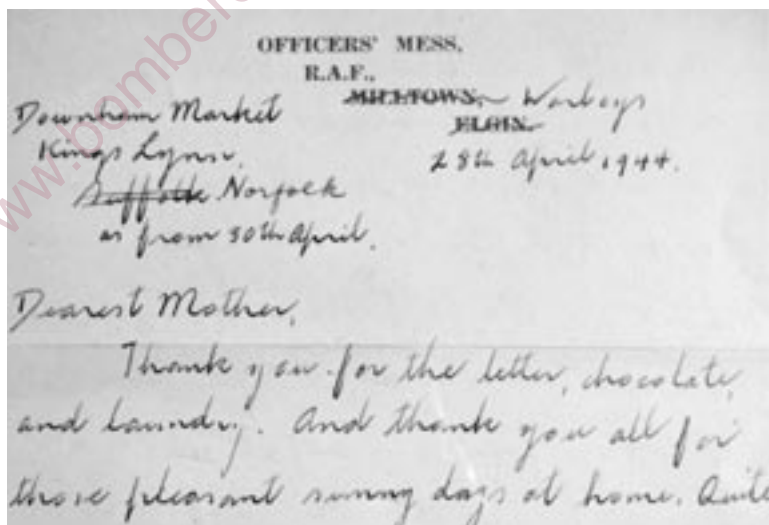 OFFICERS' MESS,
R.A.F.,
MILLTOWN, Warboys
ELGIN.
28th April 1944.
Downham Market
Kings Lynn,
Suffolk Norfolk
as from 30th April.
Dearest Mother,
Thank you for the letter, chocolate,
and laundry. And thank you all for
those pleasant sunny days at home. Quite
www.bomber